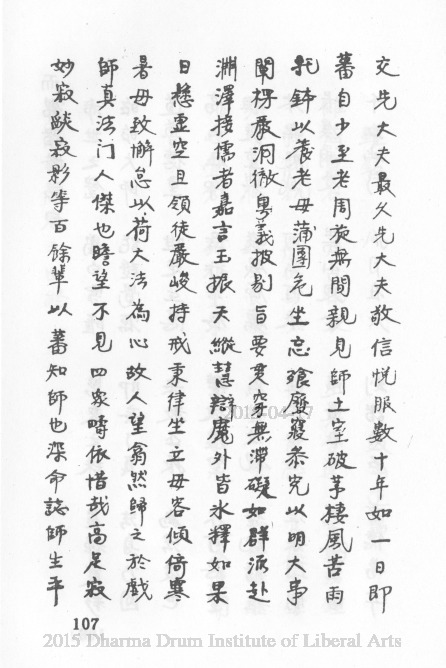 交先大夫最久先大夫敬信悅服數十年如一日即
蕃自少至老周旋無間親見師土室破茅棲風苦雨
托鉢以養老母蒲團危坐忘飱廢寢叅究以明大事
闡楞嚴洞徹粵義披剔旨要貫穿無滯礙如群派赴
淵澤接儒者嘉言玉振天縱慧辯魔外皆氷釋如果
日懸虛空且領徒嚴峻持戒秉律坐立毋容傾倚寒
暑毋致懈怠以荷大法為心故人望翕然歸之於戲
師真法门人傑也瞻望不見四衆疇依惜哉高足寂
妙寂燄寂影等百餘輩以蕃知師也深命誌師生平
107
2015-04-17
2015 Dharma Drum Institute of Liberal Arts